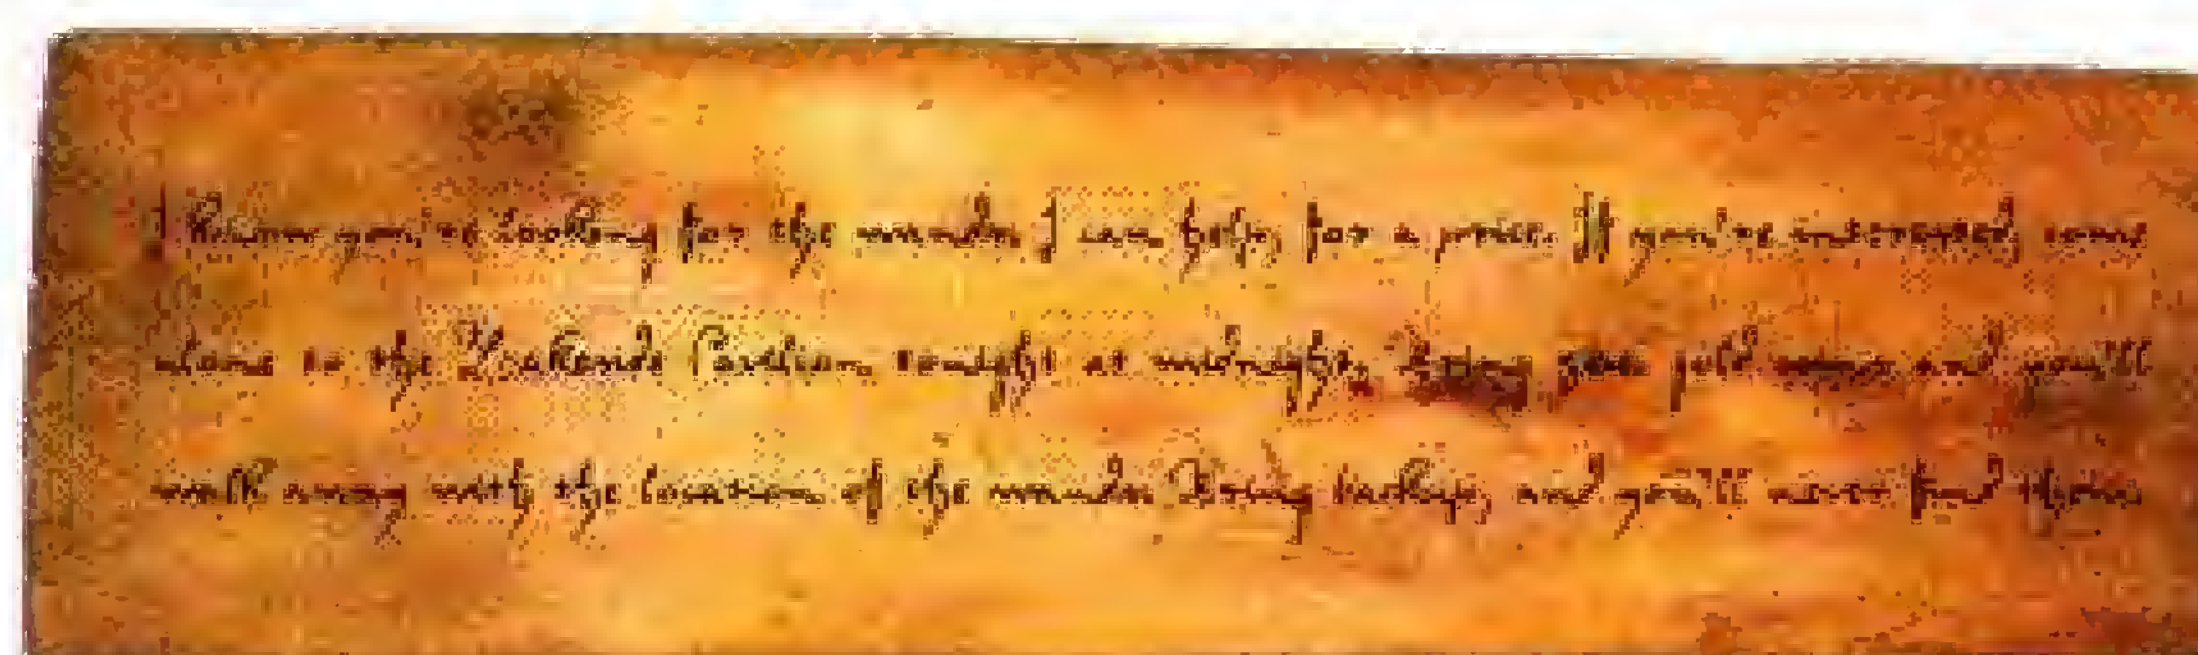 I know you're looking for the wands. I can help, for a price. If you're interested, come
alone to the Pavilion tonight at midnight. Bring gold and you'll
walk away with the location of the wands. Bring and you'll never find them